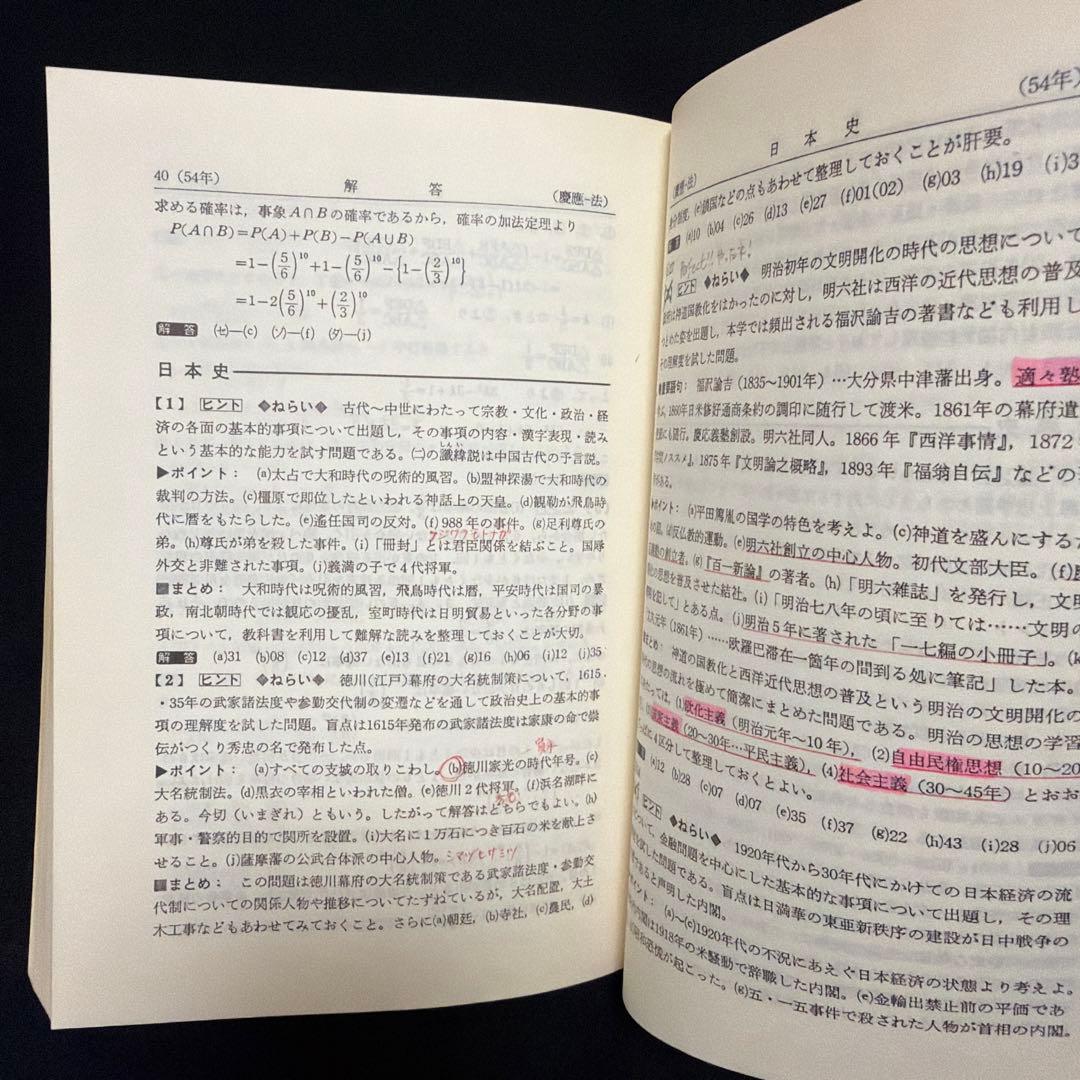 40（54年）
解答
（慶應-法）
求める確率は，事象A∩Bの確率であるから，確率の加法定理より
P(A∩B)=P(A)+P(B)−P(A∪B)
=1−(5/6)^10+1−(5/6)^10−{1−(2/3)^10}
=1−2(5/6)^10+(2/3)^10
解答 (セ)—(c) (ソ)—(f) (タ)—(j)
日本史
【1】 ヒント ◆ねらい◆ 古代～中世にわたって宗教・文化・政治・経
済の各面の基本的事項について出題し，その事項の内容・漢字表現・読み
という基本的な能力を試す問題である。㈡の讖緯説は中国古代の予言説。
しんい
▶ポイント： (a)太占で大和時代の呪術的風習。(b)盟神探湯で大和時代の
裁判の方法。(c)橿原で即位したといわれる神話上の天皇。(d)観勒が飛鳥時
代に暦をもたらした。(e)遙任国司の反対。(f)988年の事件。(g)足利尊氏の
フジワラモトナガ
弟。(h)尊氏が弟を殺した事件。(i)「冊封」とは君臣関係を結ぶこと。国辱
外交と非難された事項。(j)義満の子で4代将軍。
■まとめ： 大和時代は呪術的風習，飛鳥時代は暦，平安時代は国司の暴
政，南北朝時代では観応の擾乱，室町時代は日明貿易といった各分野の事
項について，教科書を利用して難解な読みを整理しておくことが大切。
解答 (a)31 (b)08 (c)12 (d)37 (e)13 (f)21 (g)16 (h)06 (i)12 (j)35
【2】 ヒント ◆ねらい◆ 徳川(江戸)幕府の大名統制策について，1615
・35年の武家諸法度や参勤交代制の変遷などを通して政治史上の基本的事
項の理解度を試した問題。盲点は1615年発布の武家諸法度は家康の命で崇
伝がつくり秀忠の名で発布した点。
▶ポイント： (a)すべての支城の取りこわし。(b)徳川家光の時代年号。(c)
大名統制法。(d)黒衣の宰相といわれた僧。(e)徳川2代将軍。(f)浜名湖畔に
ある。今切（いまぎれ）ともいう。したがって解答はどちらでもよい。(h)
軍事・警察的目的で関所を設置。(i)大名に1万石につき百石の米を献上さ
せること。(j)薩摩藩の公武合体派の中心人物。シマヅヒサミツ
■まとめ： この問題は徳川幕府の大名統制策である武家諸法度・参勤交
代制についての関係人物や推移についてたずねているが，大名配置，大土
木工事などもあわせてみておくこと。さらに(a)朝廷，(b)寺社，(c)農民，(d)
（54年）
日本史
（慶應-法）
(e)鎖国などの点もあわせて整理しておくことが肝要。
(a)10 (b)04 (c)26 (d)13 (e)27 (f)01(02) (g)03 (h)19 (i)3
ヒント ◆ねらい◆ 明治初年の文明開化の時代の思想について
は神道国教化をはかったのに対し，明六社は西洋の近代思想の普及
とめた姿を出題し，本学では頻出される福沢諭吉の著書なども利用し
その理解度を試した問題。
重要語句： 福沢諭吉（1835～1901年）…大分県中津藩出身。適々塾
ぶ。1860年日米修好通商条約の調印に随行して渡米。1861年の幕府遣
にも随行。慶応義塾創設。明六社同人。1866年『西洋事情』，1872
ススメ』，1875年『文明論之概略』，1893年『福翁自伝』などの
がある。
▶ポイント： (a)平田篤胤の国学の特色を考えよ。(c)神道を盛んにする
(d)反仏教的運動。(e)明六社創立の中心人物。初代文部大臣。(f)
の創立者。(g)『百一新論』の著者。(h)「明六雑誌」を発行し，文明
の思想を普及させた結社。(i)「明治七八年の頃に至りては……文明の
を犯して」とある点。(j)明治5年に著された「一七編の小冊子」。(k
文久元年（1861年）……欧羅巴滞在一箇年の間到る処に筆記」した本。
まとめ： 神道の国教化と西洋近代思想の普及という明治の文明開化の
の思想の流れを極めて簡潔にまとめた問題である。明治の思想の学習
たっては，(1)欧化主義（明治元年～10年），(2)自由民権思想（10～20
主義（20～30年…平民主義），(4)社会主義（30～45年）とおお
っぱに4区分して整理しておくとよい。
(a)12 (b)28 (c)07 (d)07 (e)35 (f)37 (g)22 (h)43 (i)28 (j)06
ヒント ◆ねらい◆ 1920年代から30年代にかけての日本経済の流
ついて，金融問題を中心にした基本的な事項について出題し，その理
を試した問題である。盲点は日満華の東亜新秩序の建設が日中戦争の
であると声明した内閣。
ポイント： (a)～(c)1920年代の不況にあえぐ日本経済の状態より考えよ。
内閣は1918年の米騒動で辞職した内閣。(e)金輸出禁止前の平価であ
昭和恐慌が起こった。(g)五・一五事件で殺された人物が首相の内閣。